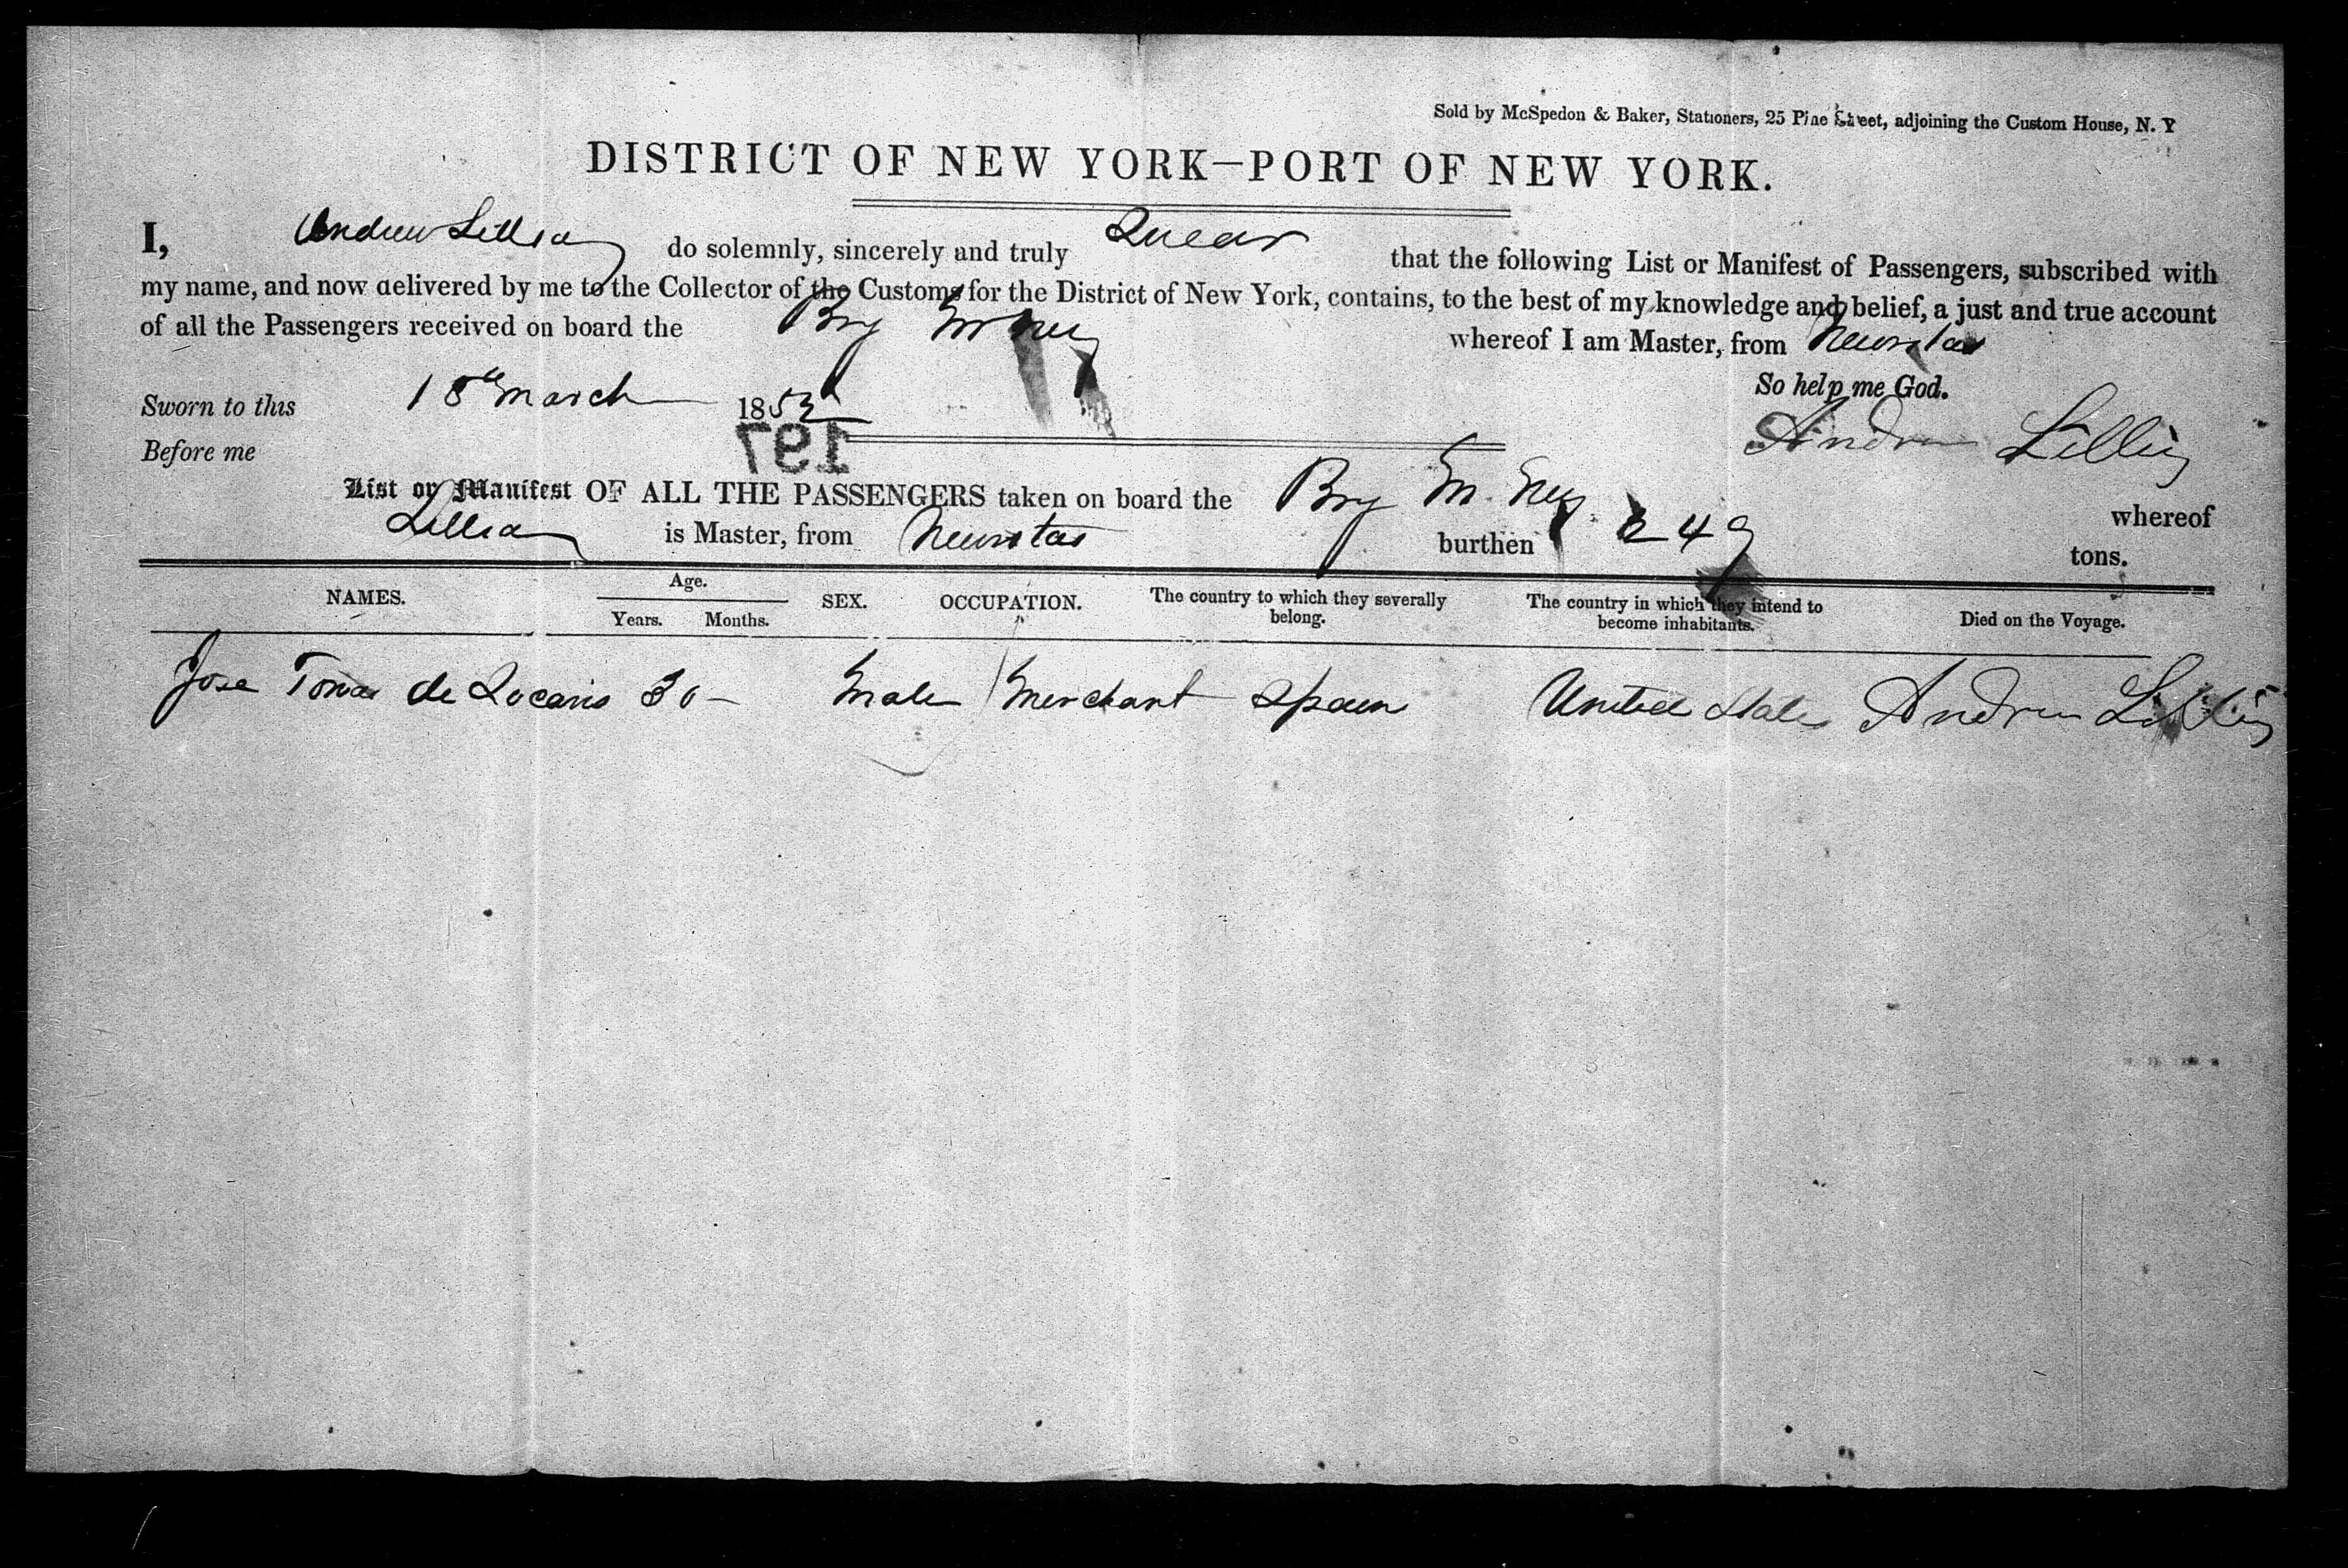 Sold by McSpedon & Baker, Stationers, 25 Pine Street, adjoining the Custom House, N. Y
DISTRICT OF NEW YORK—PORT OF NEW YORK.
I, Andrew do solemnly, sincerely and truly Swear that the following List or Manifest of Passengers, subscribed with
my name, and now delivered by me to the Collector of the Customs for the District of New York, contains, to the best of my knowledge and belief, a just and true account
of all the Passengers received on board the Brig whereof I am Master, from Nuevitas
So help me God.
Sworn to this 18th March 1853
197
Before me
Andrew
List or Manifest OF ALL THE PASSENGERS taken on board the Brig whereof
is Master, from Nuevitas burthen 249 tons.
NAMES. Age. SEX. OCCUPATION. The country to which they severally belong. The country in which they intend to become inhabitants. Died on the Voyage.
Years. Months.
Jose Tomas de 30 – Male Merchant Spain United States Andrew